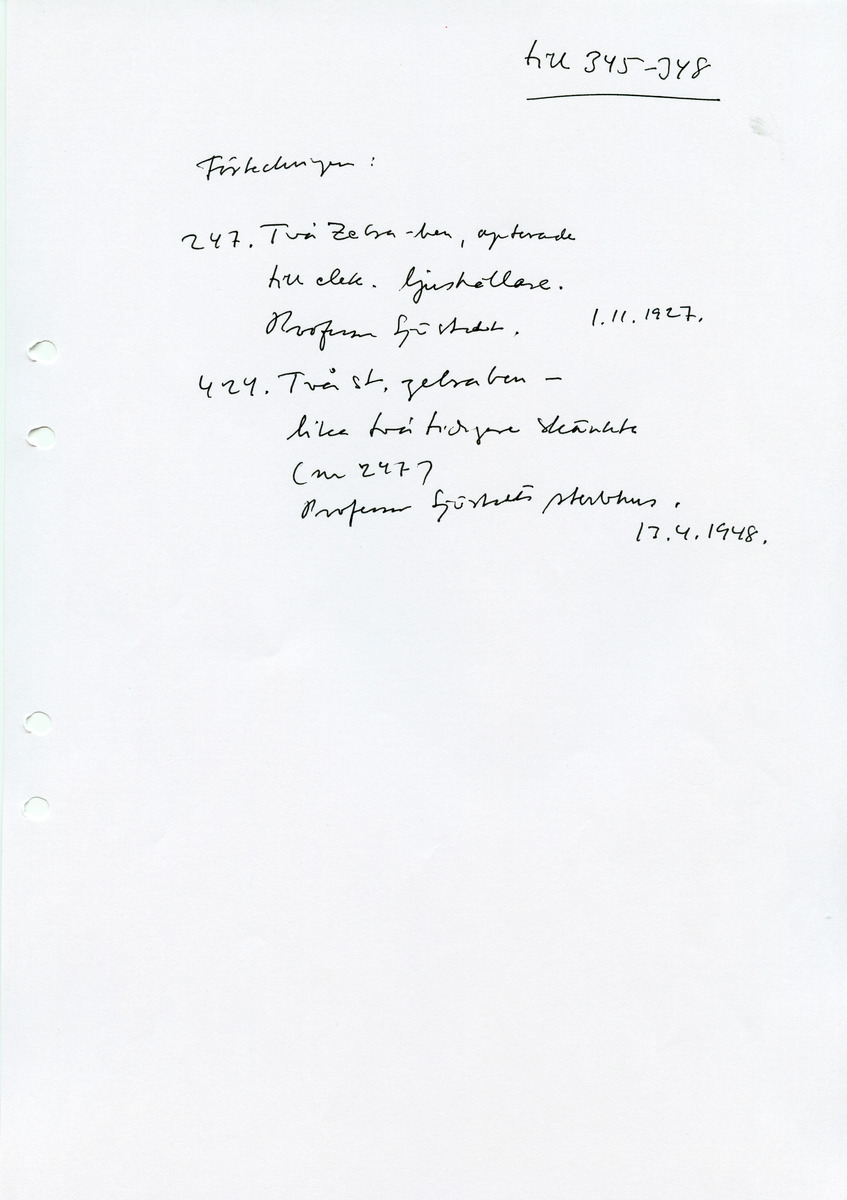 till 345-348
Förteckningen:
247. Två Zebra-ben, apterade
till elek. ljushållare.
Professor Sjöstedt. 1.11.1927.
424. Två st. zebraben –
lika två tidigare skänkta
(nr 247)
Professor Sjöstedts sterbhus.
13.4.1948.